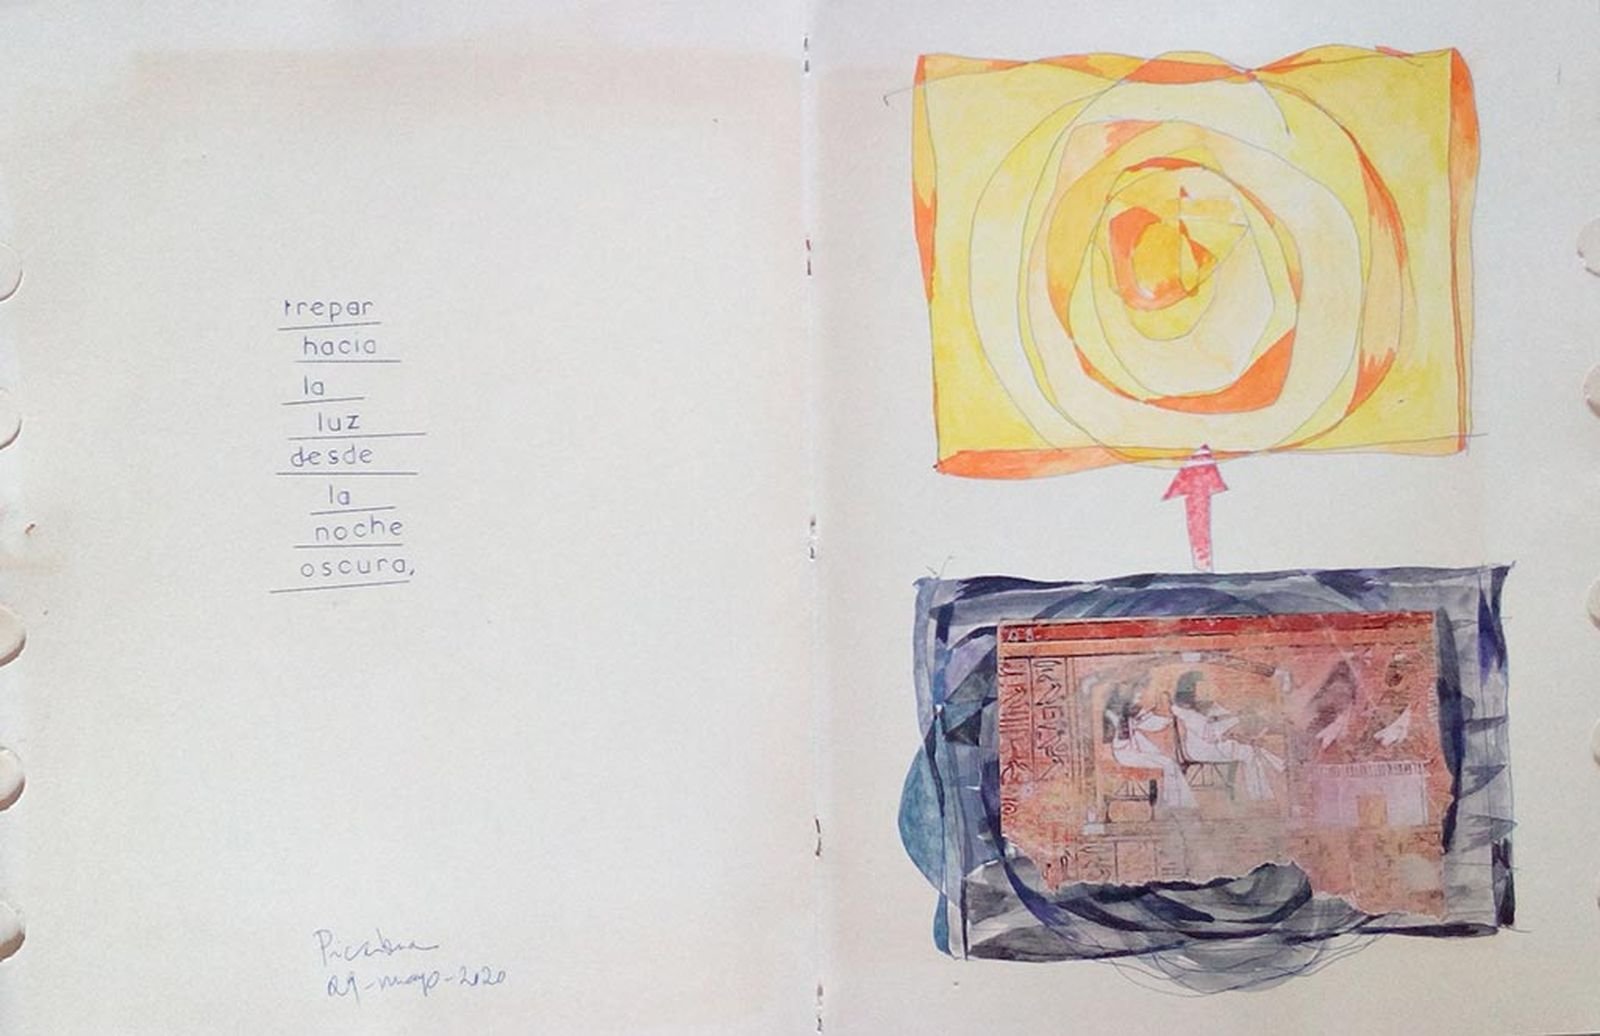 trepar
hacia
la
luz
desde
la
noche
oscura,
29-mayo-2020